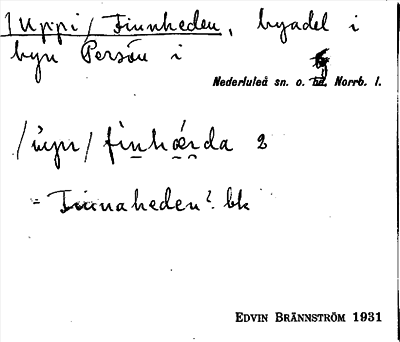 /Uppi/ Finnheden, byadel i
byn Persön i
Nederluleå sn. o. Norrb. l.
/ùpı/ fìnhǽrda 2
= Finnaheden? bk
EDVIN BRÄNNSTRÖM 1931